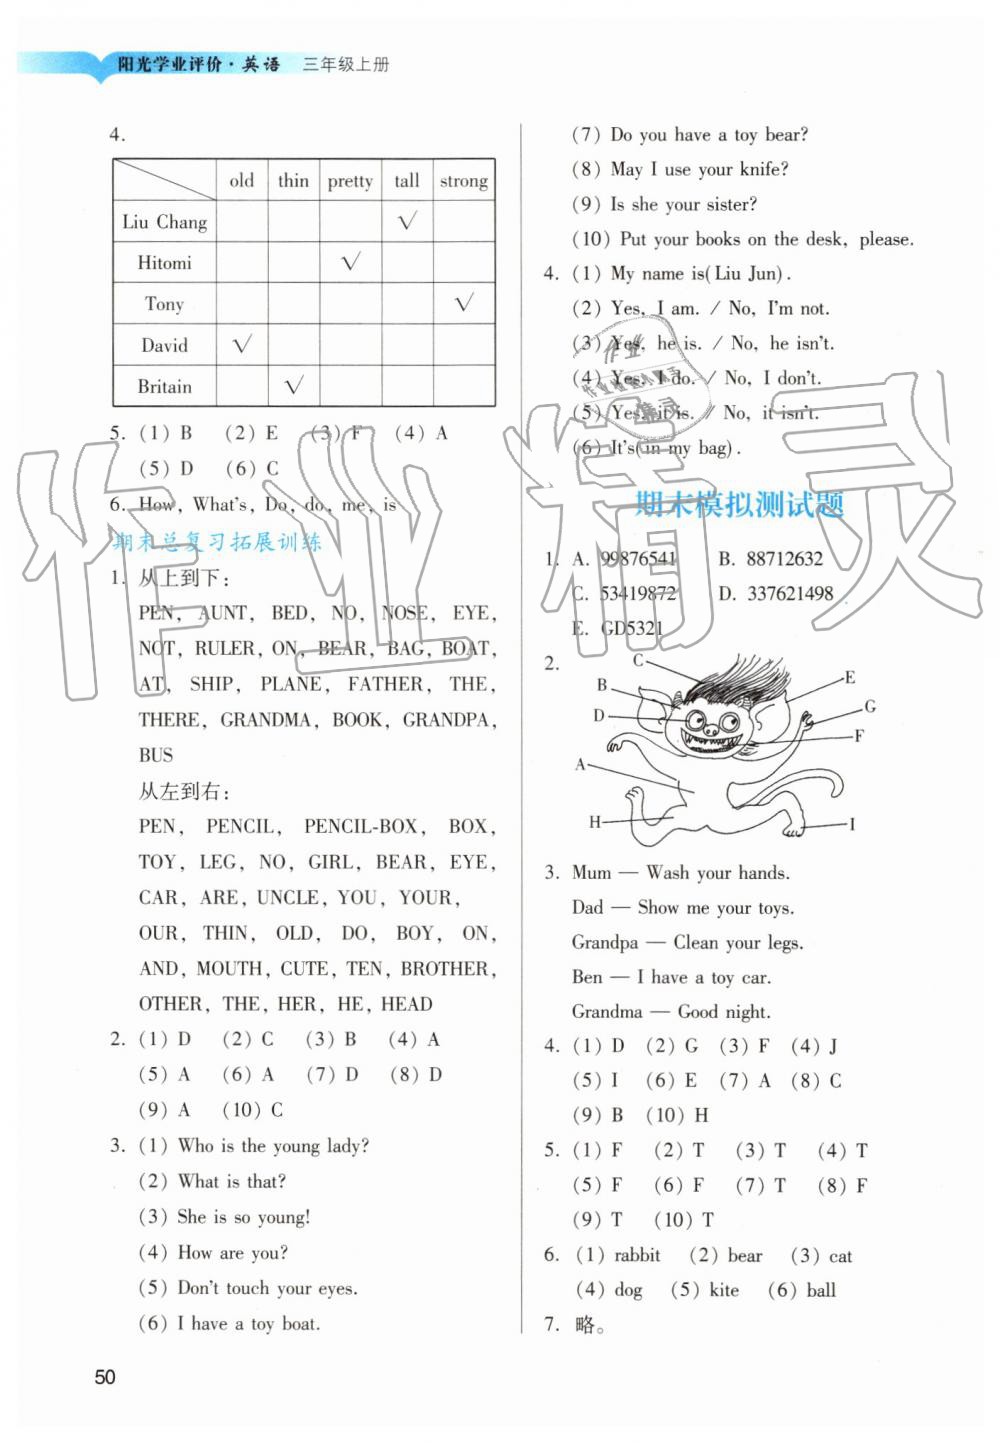 阳光学业评价·英语 三年级上册
4.
old thin pretty tall strong
Liu Chang √
Hitomi √
Tony √
David √
Britain √
5. (1) B (2) E (3) F (4) A
(5) D (6) C
6. How, What's, Do, do, me, is
期末总复习拓展训练
1. 从上到下:
PEN, AUNT, BED, NO, NOSE, EYE,
NOT, RULER, ON, BEAR, BAG, BOAT,
AT, SHIP, PLANE, FATHER, THE,
THERE, GRANDMA, BOOK, GRANDPA,
BUS
从左到右:
PEN, PENCIL, PENCIL-BOX, BOX,
TOY, LEG, NO, GIRL, BEAR, EYE,
CAR, ARE, UNCLE, YOU, YOUR,
OUR, THIN, OLD, DO, BOY, ON,
AND, MOUTH, CUTE, TEN, BROTHER,
OTHER, THE, HER, HE, HEAD
2. (1) D (2) C (3) B (4) A
(5) A (6) A (7) D (8) D
(9) A (10) C
3. (1) Who is the young lady?
(2) What is that?
(3) She is so young!
(4) How are you?
(5) Don't touch your eyes.
(6) I have a toy boat.
50
(7) Do you have a toy bear?
(8) May I use your knife?
(9) Is she your sister?
(10) Put your books on the desk, please.
4. (1) My name is(Liu Jun).
(2) Yes, I am. / No, I'm not.
(3) Yes, he is. / No, he isn't.
(4) Yes, I do. / No, I don't.
(5) Yes, it is. / No, it isn't.
(6) It's(in my bag).
期末模拟测试题
1. A. 99876541 B. 88712632
C. 53419872 D. 337621498
E. GD5321
2.
C
B
E
D
G
F
A
H
I
3. Mum — Wash your hands.
Dad — Show me your toys.
Grandpa — Clean your legs.
Ben — I have a toy car.
Grandma — Good night.
4. (1) D (2) G (3) F (4) J
(5) I (6) E (7) A (8) C
(9) B (10) H
5. (1) F (2) T (3) T (4) T
(5) F (6) F (7) T (8) F
(9) T (10) T
6. (1) rabbit (2) bear (3) cat
(4) dog (5) kite (6) ball
7. 略。
作业精灵